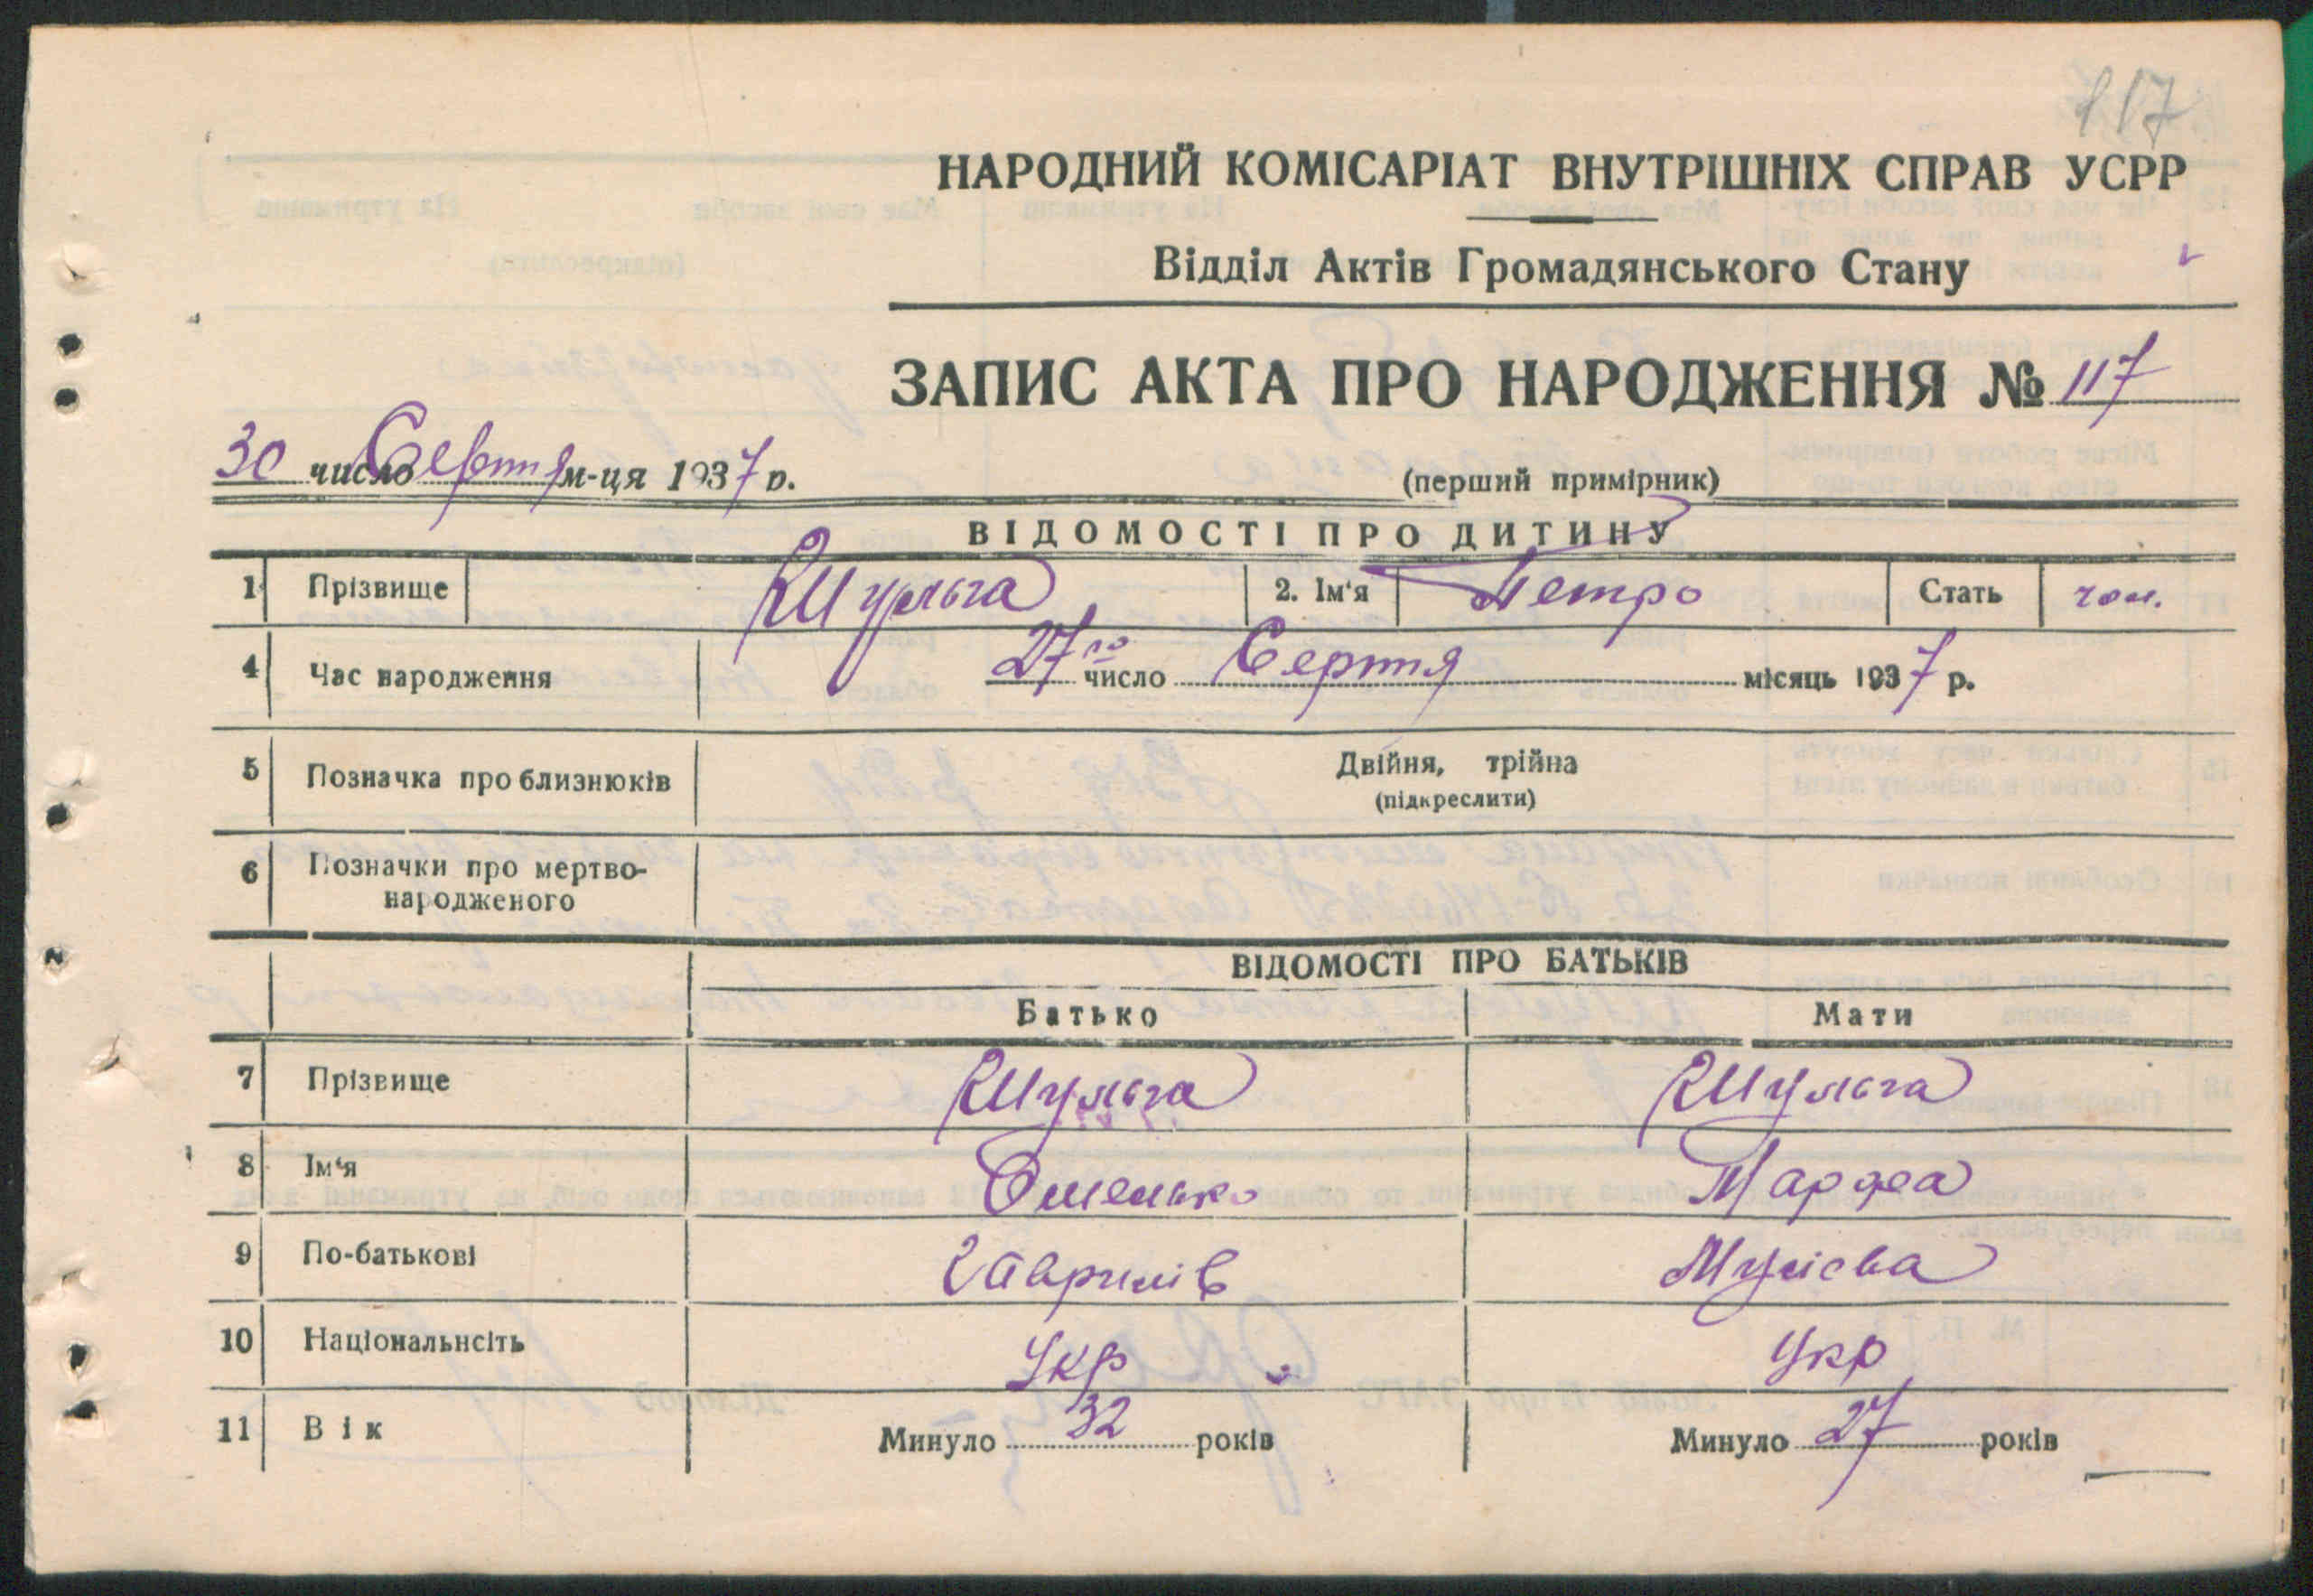 117
НАРОДНИЙ КОМІСАРІАТ ВНУТРІШНІХ СПРАВ УСРР
Відділ Актів Громадянського Стану
ЗАПИС АКТА ПРО НАРОДЖЕННЯ № 117
30 число Серпня м-ця 1937 р.
(перший примірник)
ВІДОМОСТІ ПРО ДИТИНУ
1 Прізвище Шульга 2. Ім'я Петро Стать чол.
4 Час народження 27го число Серпня місяць 1937 р.
5 Позначка про близнюків Двійня, трійна
(підкреслити)
6 Позначки про мертво-
народженого
ВІДОМОСТІ ПРО БАТЬКІВ
Батько Мати
7 Прізвище Шульга Шульга
8 Ім'я Омелько Марфа
9 По-батькові Гаврилів
10 Національнсіть Укр Укр
11 Вік Минуло 32 років Минуло 27 років